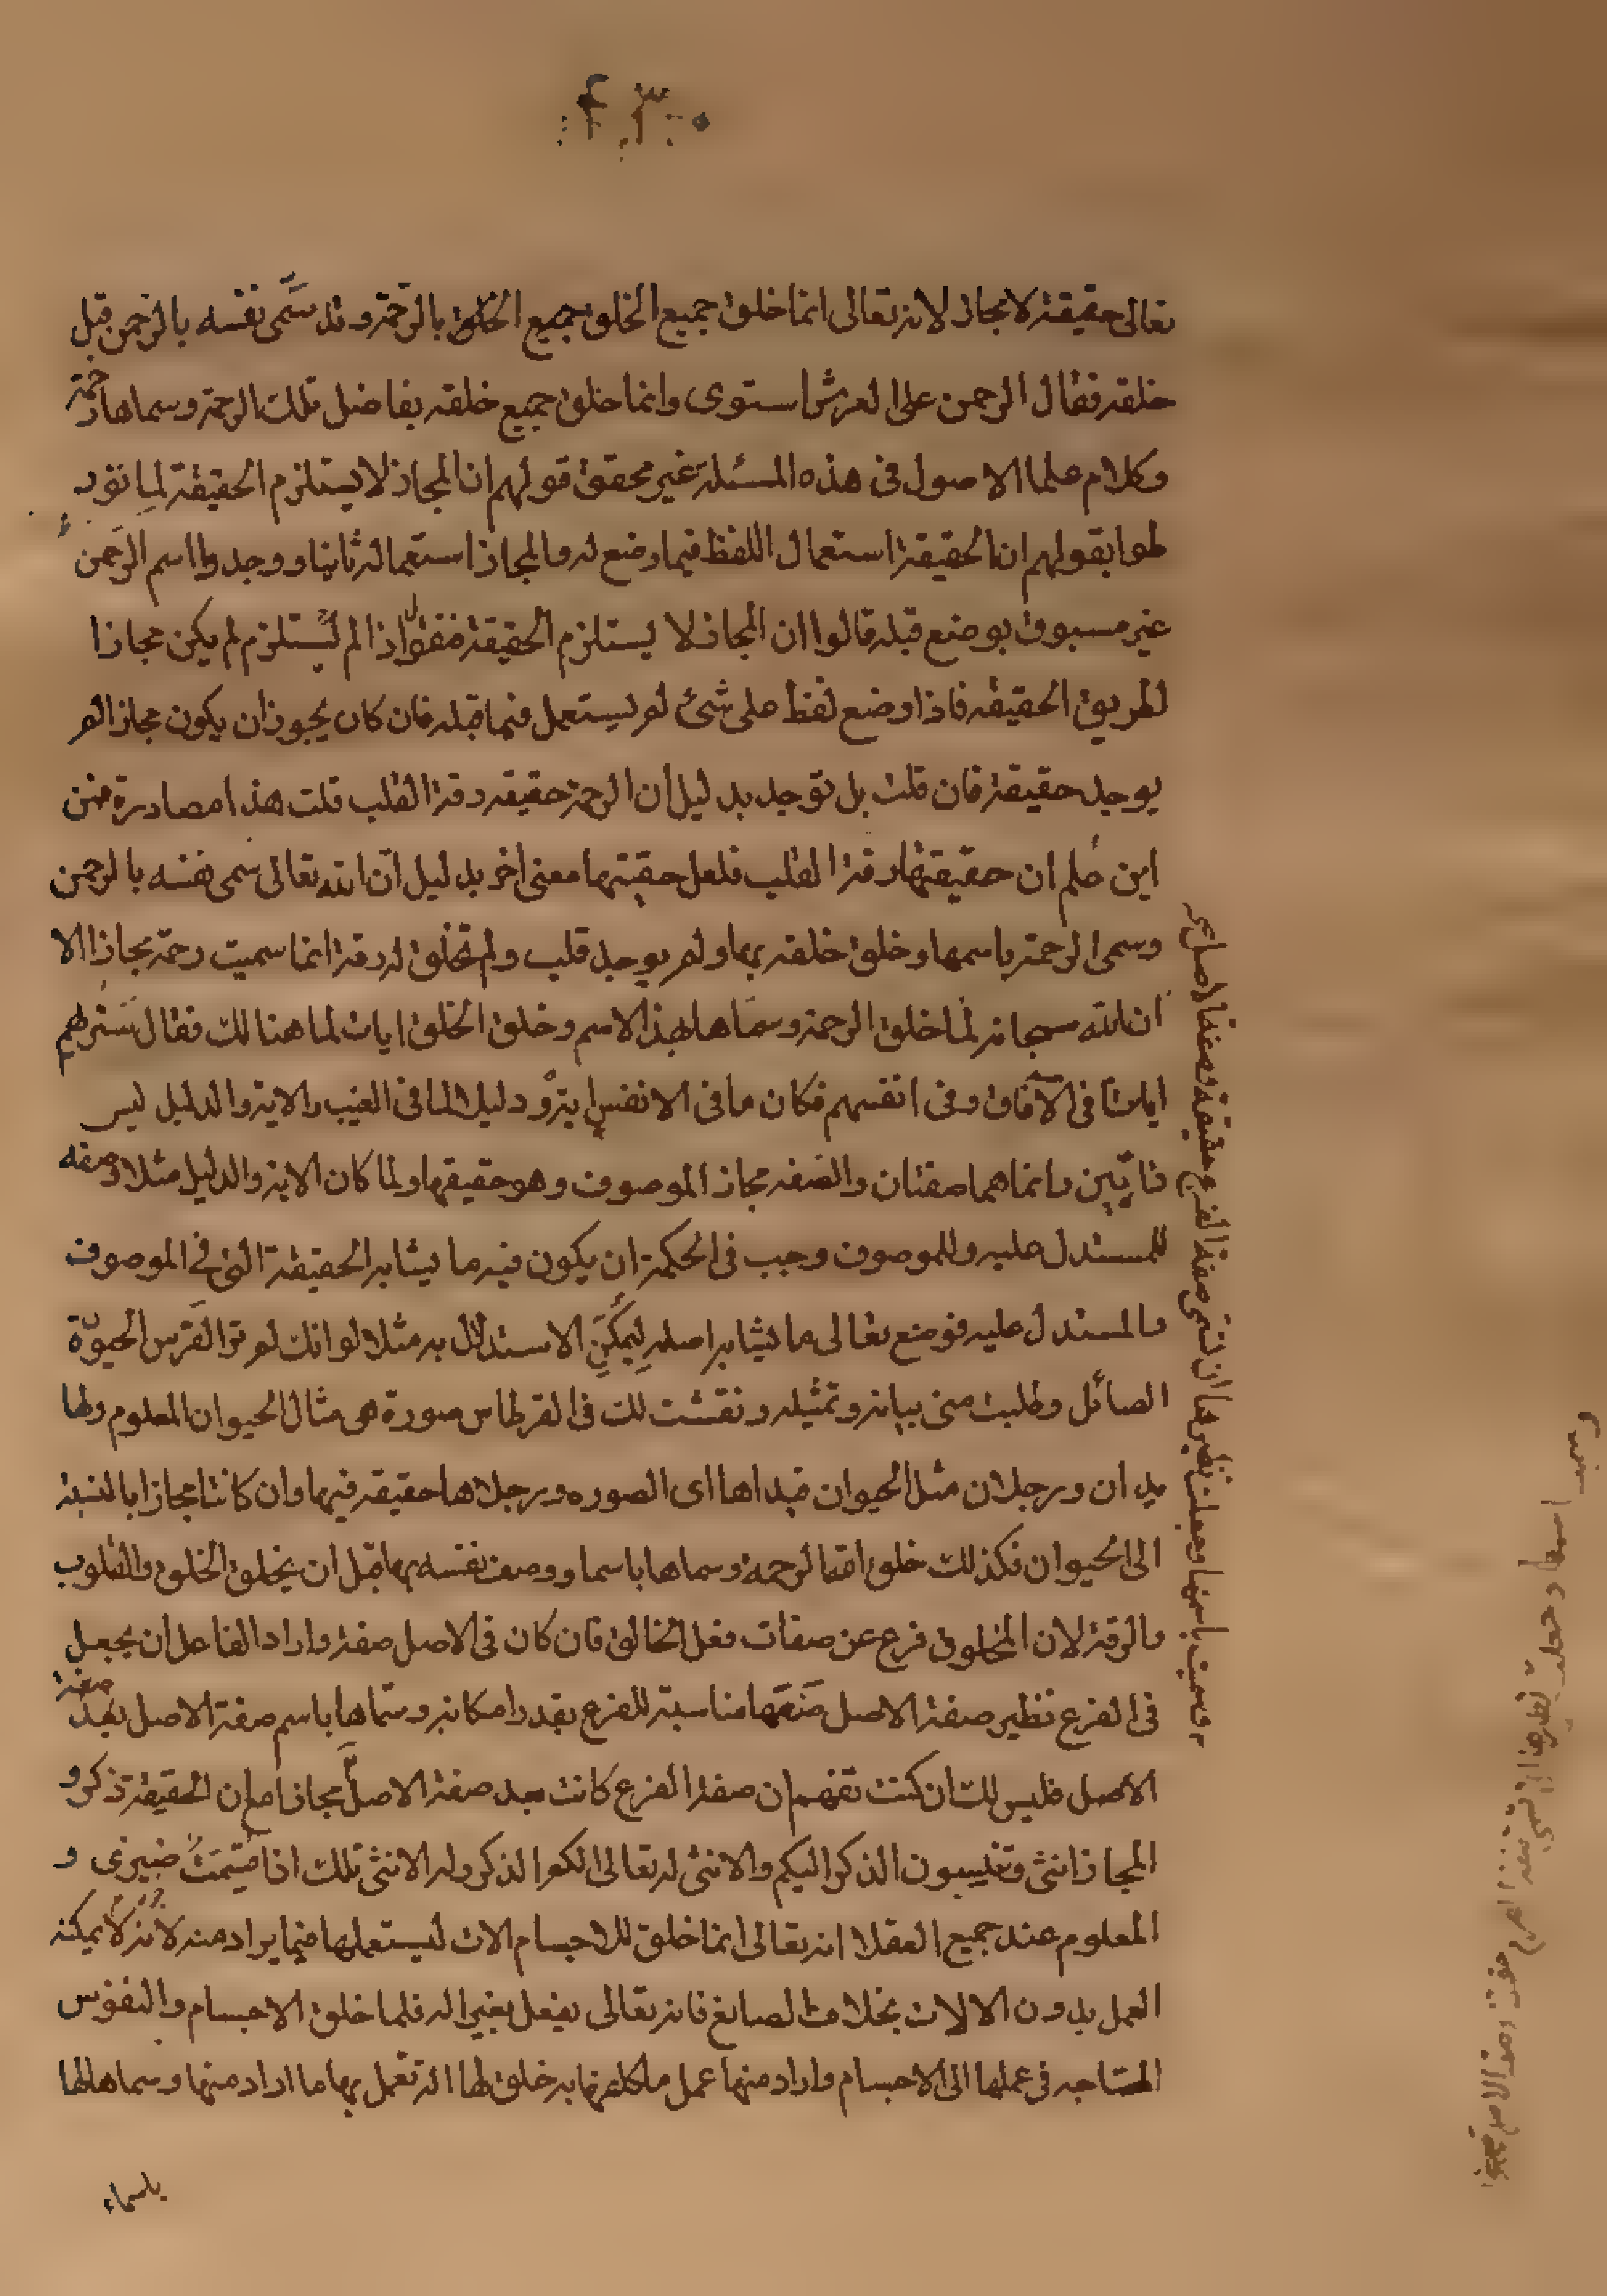 تعالى حقيقة لا مجاز لانه تعالى انما خلق جميع الخلق جميع الخلق بالرحمة وقد سمّى نفسه بالرحمن قبل
خلقه فقال الرحمن على العرش استوى وانما خلق جميع خلقه بفاضل تلك الرحمة وسماها رحمة
وكلام علما الاصول فى هذه المسئلة غير محقق قولهم ان المجاز لا يستلزم الحقيقة لما
بقولهم ان الحقيقة استعمال اللفظ فيما وضع له والمجاز استعماله ثانيا ووجدوا اسم الرحمن
غير مسبوق بوضع قبله قالوا ان المجاز لا يستلزم الحقيقة فنقول اذا لم يستلزم لم يكن مجازا
لطريق الحقيقة فاذا وضع لفظ على شئ لم يستعمل فيما قبله فان كان يجوز ان يكون مجاز الم
يوجد حقيقة فان قلت بل توجد بدليل ان الرحمة حقيقه رقة القلب قلت هذا مصادرة فمن
اين علم ان حقيقتها رقة القلب فلعل حقيقتها معنى اخر بدليل انّ الله تعالى سمى نفسه بالرحمن
وسمى الرحمة باسمها وخلق خلقه بها ولم يوجد قلب ولم تخلق له رقة انما سميت رحمة مجازا الا
ان الله سبحانه لمّا خلق الرحمة وسمّاها بهذا الاسم وخلق الخلق ايات لما هنالك فقال سنريهم
اياتنا فى الآفاق وفى انفسهم فكان ما فى الانفس اية ودليل لما فى الغيب والاية والدليل ليس
ذاتيّين وانما هما صفتان والصفه مجاز الموصوف وهو حقيقتها ولما كان الاية والدليل مثلا وصفه
للمستدل عليه وللموصوف وجب فى الحكمة ان يكون فيه ما يشابه الحقيقة التى فى الموصوف
والمستدل عليه فوضع تعالى ما يشابه اصله ليمكن الاستدلال به مثلا لو انك لم تر الفرس الحيوان
الصائل وطلبت منى بيانه وتمثيله ونقشت لك فى القرطاس صورة هى مثال الحيوان المعلوم ولها
يدان ورجلان مثل الحيوان فيداها اى الصوره ورجلاها حقيقه فيها وان كانتا مجازا بالنسبة
الى الحيوان فكذلك خلق الله الرحمة وسماها باسما ووصف نفسه بها قبل ان يخلق الخلق والقلوب
والرقة لان المخلوق فرع عن صفات فعل الخالق فان كان فى الاصل صفة واراد الفاعل ان يجعل
فى الفرع نظير صفة الاصل صنعها مناسبة للفرع بقدر امكانه وسمّاها باسم صفة الاصل بعد صفة
الاصل فليس لك ان كنت تفهم ان صفة الفرع كانت بعد صفة الاصل مجازا مع ان الحقيقة ذكر و
المجاز انثى وتنسبون الذكر اليكم والانثى له تعالى الكم الذكر وله الانثى تلك اذا قسمة ضيزى و
المعلوم عند جميع العقلا انه تعالى انما خلق للاجسام الات ليستعملها فيما يراد منه لانه لا يمكنه
العمل بدون الالات بخلاف الصانع فانه تعالى يفعل بغير اله فلما خلق الاجسام والنفوس
المحتاجه فى عملها الى الاجسام واراد منها عمل ما كلفها به خلق لها اله تعمل بها ما اراد منها وسماها لها
باسماء
وسميت باسمها وجعلت نظيرها ان تسمى صفة الفرع حقيقة وصفة الاصل